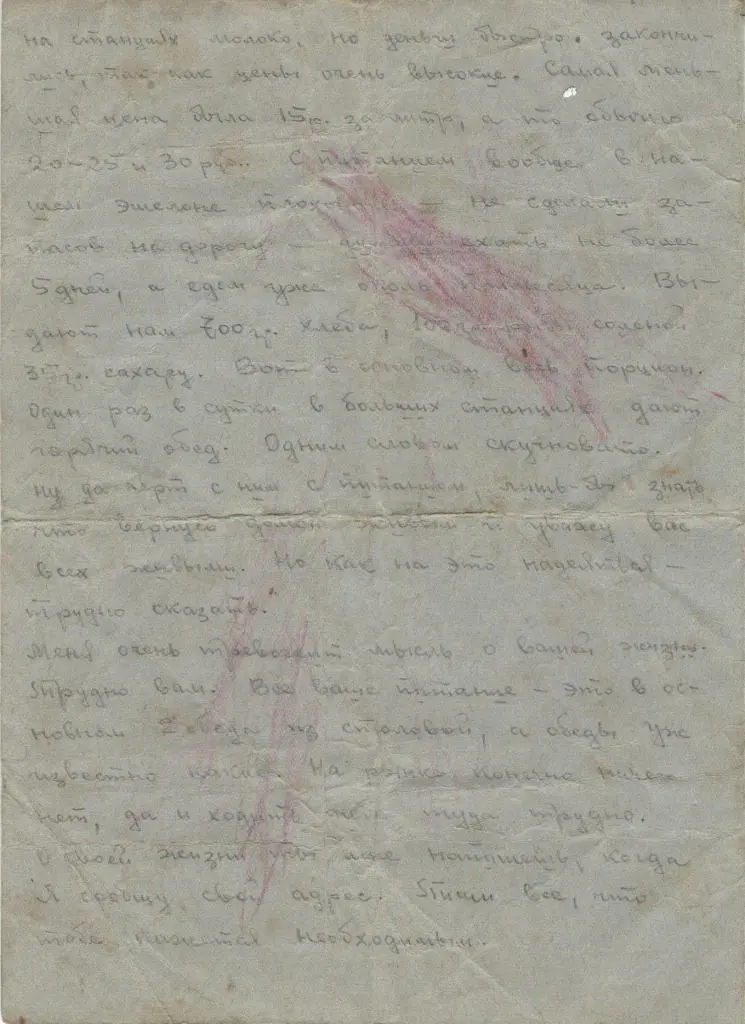 на станциях молоко, но деньги быстро. закончи-
лись, так как цены очень высокие. Самая мень-
шая цена была 15р. за литр, а то обычно
20-25 и 30 руб.. С питанием вообще в на-
шем эшелоне плохо — не сделали за-
пасов на дорогу — думали ехать не более
5 дней, а едем уже около полмесяца. Вы-
дают нам 700 гр. хлеба, 100 гр. рыбы соленой
35 гр. сахару. Вот в основном весь порцион.
Один раз в сутки в больших станциях дают
горячий обед. Одним словом скучновато.
ну да черт с ним с питанием, лишь-бы знать
что вернусь домой живым и увижу вас
всех живыми. Но как на это надеяться —
трудно сказать.
Меня очень тревожит мысль о вашей жизни.
Трудно вам. Все ваше питание — это в ос-
новном 2 обеда из столовой, а обеды уж
известно какие. На рынке конечно ничего
нет, да и ходить туда трудно.
О своей жизни ты мне напишешь, когда
я сообщу свой адрес. Пиши все, что
тебе кажется необходимым.